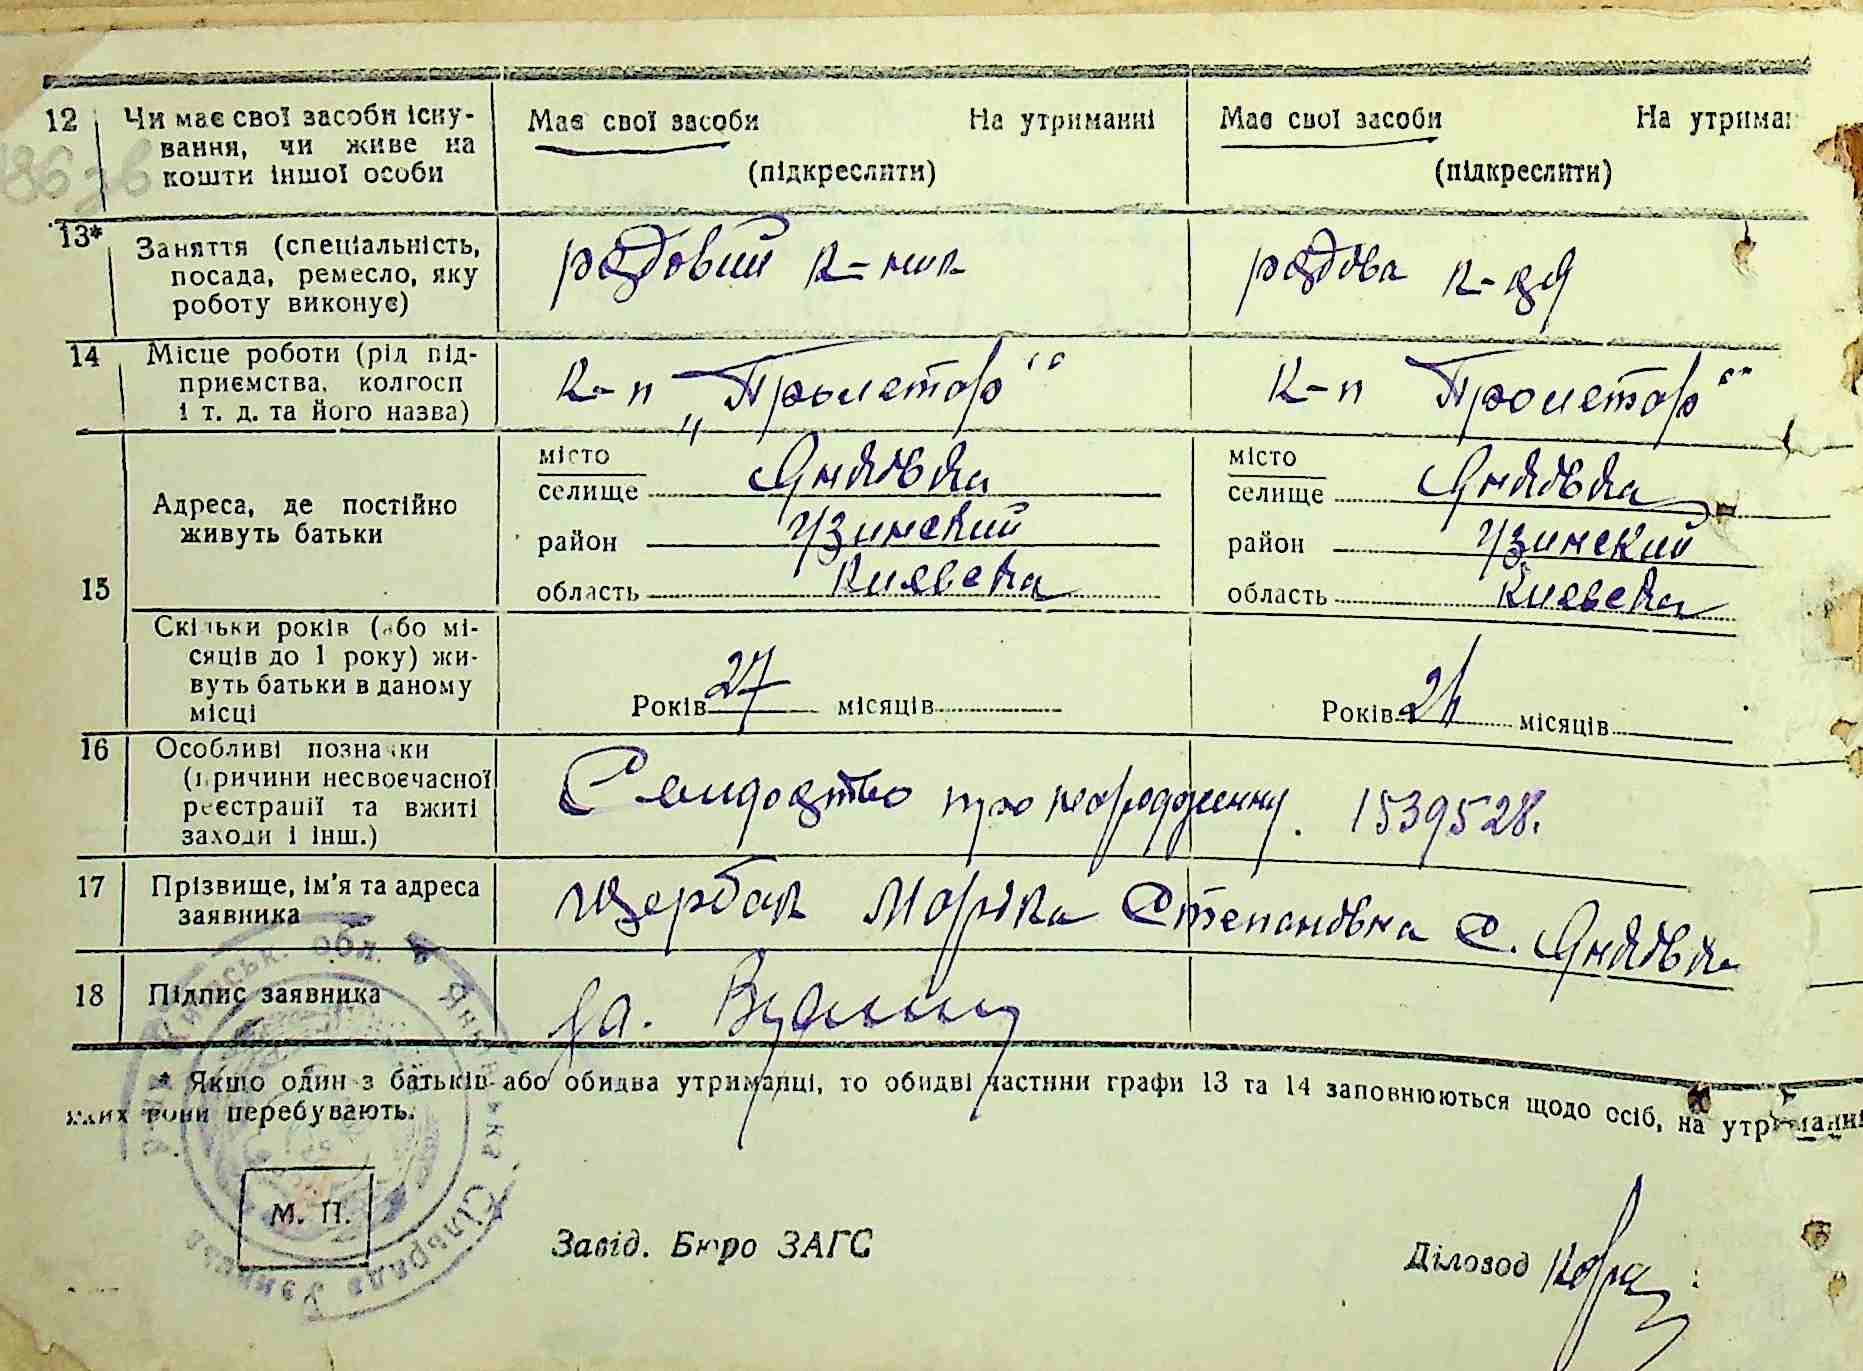 12 Чи має свої засоби існу-
вання, чи живе на
кошти іншої особи
Має свої засоби На утриманні
(підкреслити)
Має свої засоби На утриман
(підкреслити)
13* Заняття (спеціальність,
посада, ремесло, яку
роботу виконує)
рядовий к-ник
рядова к-ця
14 Місце роботи (рід під-
приємства, колгосп
і т. д. та його назва)
к-п „Пролетар"
к-п Пролетар"
15 Адреса, де постійно
живуть батьки
місто
селище Янківка
район Узинский
область Киевска
місто
селище Янківка
район Узинский
область Киевска
Скільки років (або мі-
сяців до 1 року) жи-
вуть батьки в даному
місці
Років 27 місяців
Років 21 місяців
16 Особливі познаки
(причини несвоєчасної
реєстрації та вжиті
заходи і інш.)
Свидоцтво про народження. 1539528.
17 Прізвище, ім'я та адреса
заявника
Щербак Марія Степановна с. Янківка
18 Підпис заявника
за.
* Якщо один з батьків або обидва утриманці, то обидві частини графи 13 та 14 заповнюються щодо осіб, на утриманні
яких вони перебувають.
М. П.
Завід. Бюро ЗАГС
Діловод